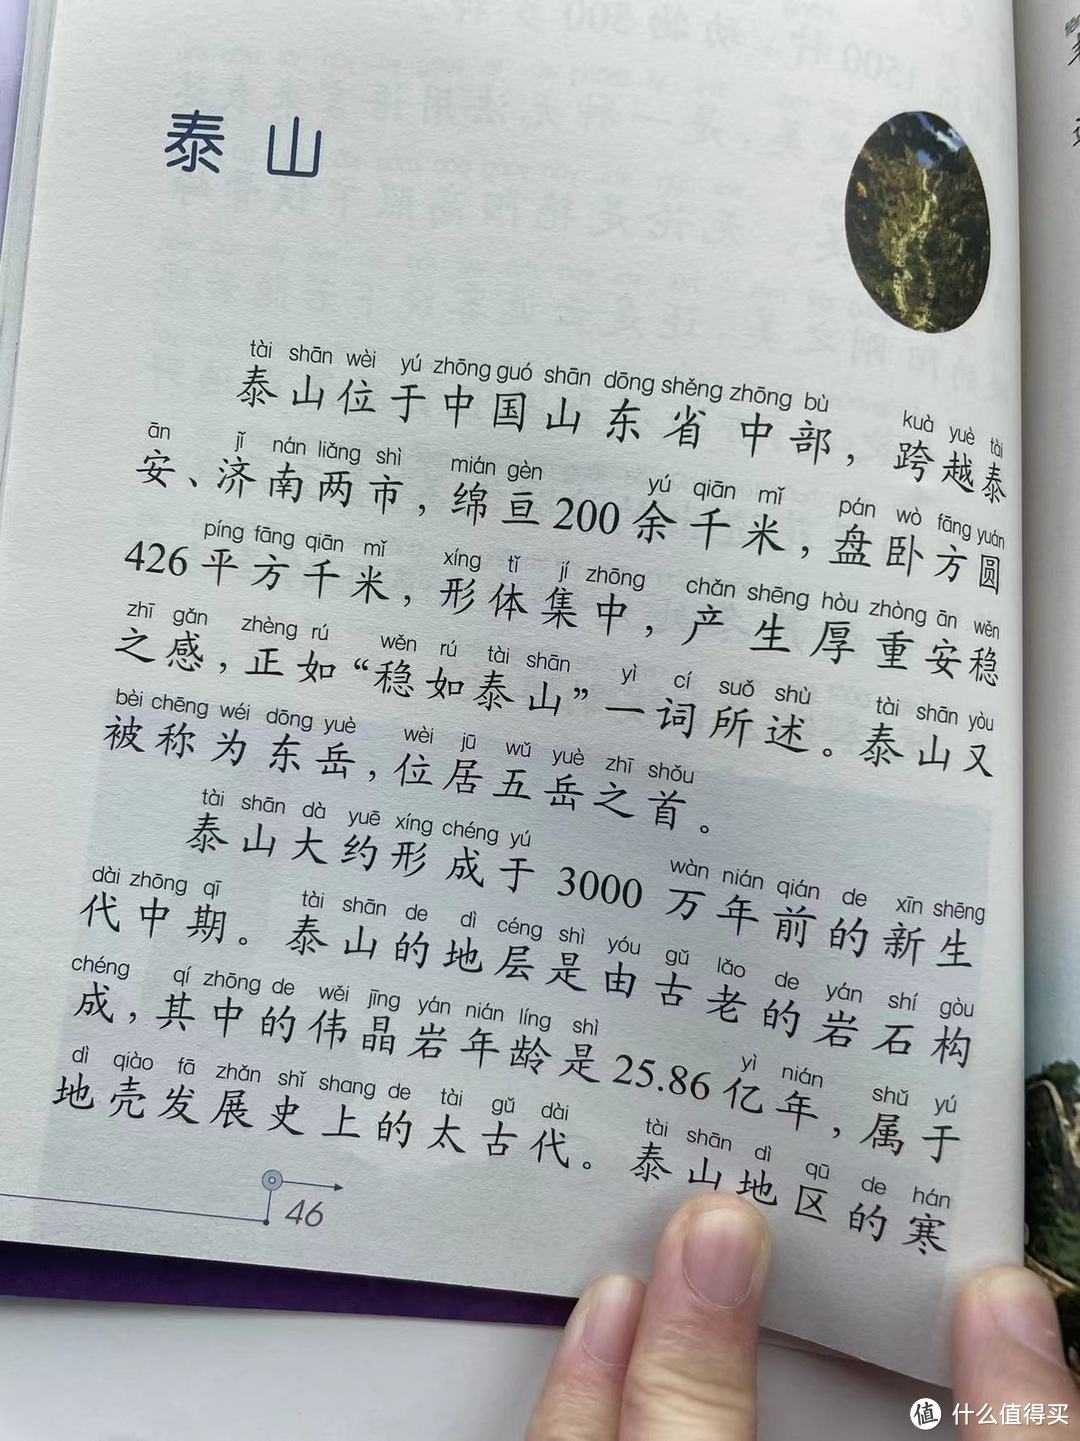 泰山
tài shān wèi yú zhōng guó shān dōng shěng zhōng bù kuà yuè tài
泰山位于中国山东省中部，跨越泰
ān jǐ nán liǎng shì mián gèn yú qiān mǐ pán wò fāng yuán
安、济南两市，绵亘200余千米，盘卧方圆
píng fāng qiān mǐ xíng tǐ jí zhōng chǎn shēng hòu zhòng ān wěn
426平方千米，形体集中，产生厚重安稳
zhī gǎn zhèng rú wěn rú tài shān yì cí suǒ shù tài shān yòu
之感，正如“稳如泰山”一词所述。泰山又
bèi chēng wéi dōng yuè wèi jū wǔ yuè zhī shǒu
被称为东岳，位居五岳之首。
tài shān dà yuē xíng chéng yú wàn nián qián de xīn shēng
泰山大约形成于3000万年前的新生
dài zhōng qī tài shān de dì céng shì yóu gǔ lǎo de yán shí gòu
代中期。泰山的地层是由古老的岩石构
chéng qí zhōng de wěi jīng yán nián líng shì yì nián shǔ yú
成，其中的伟晶岩年龄是25.86亿年，属于
dì qiào fā zhǎn shǐ shang de tài gǔ dài tài shān dì qū de hán
地壳发展史上的太古代。泰山地区的寒
46
值 什么值得买